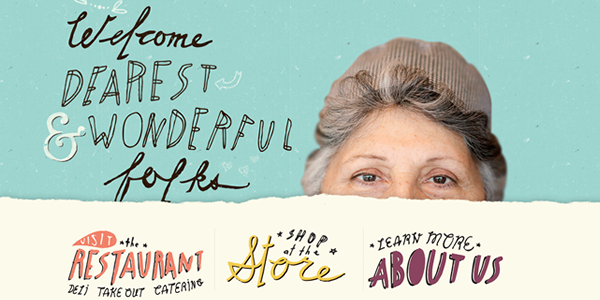 Welcome
DEAREST
& WONDERFUL
folks
VISIT the
RESTAURANT
DELI TAKE OUT CATERING
SHOP
at the
Store
LEARN MORE
ABOUT US